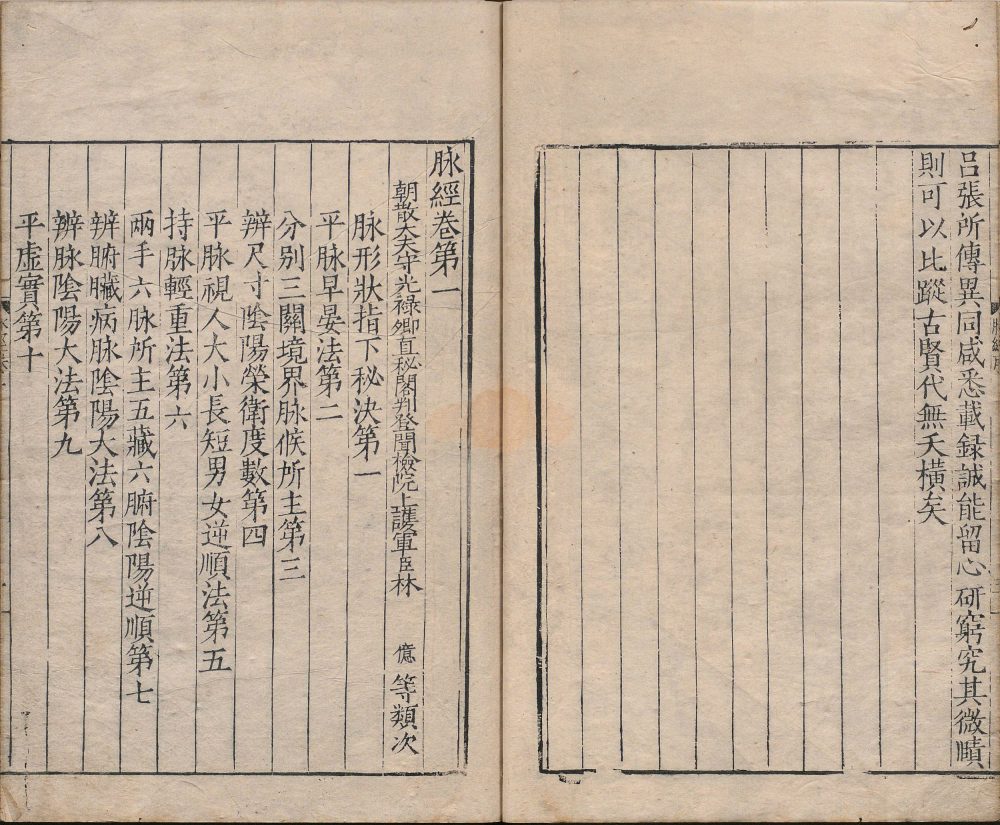 呂張所傳異同咸悉載録誠能留心研窮究其微賾
則可以比蹤古賢代無夭横矣
脉經卷第一
朝散大夫守光禄卿直秘閣判登聞檢院上護軍臣林　億等類次
脉形狀指下秘決第一
平脉早晏法第二
分别三關境界脉候所主第三
辨尺寸陰陽榮衛度數第四
平脉視人大小長短男女逆順法第五
持脉輕重法第六
兩手六脉所主五藏六腑陰陽逆順第七
辨腑臟病脉陰陽大法第八
辨脉陰陽大法第九
平虚實第十